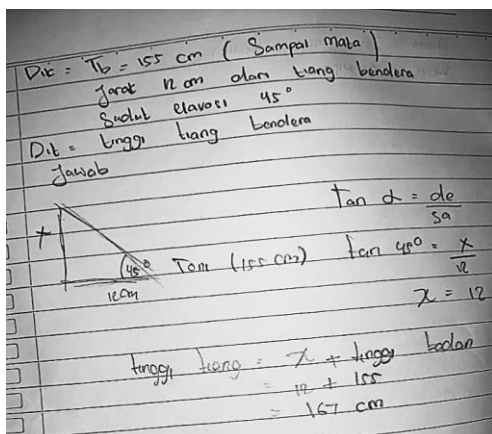 Dik = Tb = 155 cm ( Sampai mata )
Jarak 12 cm dari tiang bendera
Sudut elavasi 45°
Dit = tinggi tiang bendera
Jawab
Tan α = de/sa
x
45°
Tomi (155 cm)
tan 45° = x/12
12cm
x = 12
tinggi tiang = x + tinggi badan
= 12 + 155
= 167 cm